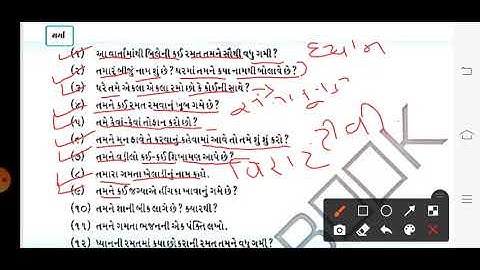 ચર્ચા
(૧) આ વાર્તામાંથી ખિલેની કઈ રમત તમને સૌથી વધુ ગમી?
(૨) તમારું બીજું નામ શું છે? ઘરમાં તમને કયા નામથી બોલાવે છે?
(૩) ઘરે તમે એકલા એકલા રમો છો કે કોઈની સાથે?
(૪) તમને કઈ રમત રમવાનું ખૂબ ગમે છે?
(૫) તમે કેવાં-કેવાં તોફાન કરો છો?
(૬) તમને મન ફાવે તે કરવાનું કહેવામાં આવે તો તમે શું શું કરો?
(૭) તમને વડીલો કઈ-કઈ શિખામણ આપે છે?
(૮) તમારા ગમતા ખેલાડીનું નામ કહો.
(૯) તમને કઈ જગ્યાએ હીંચકા ખાવાનું ગમે છે?
(૧૦) તમને શાની બીક લાગે છે? ક્યારથી?
(૧૧) તમને ગમતા ભજનની એક પંક્તિ લખો.
(૧૨) ધ્યાનની રમતમાં કયા છોકરાની રમત તમને વધુ ગમી?
વિરાટ
BOOK